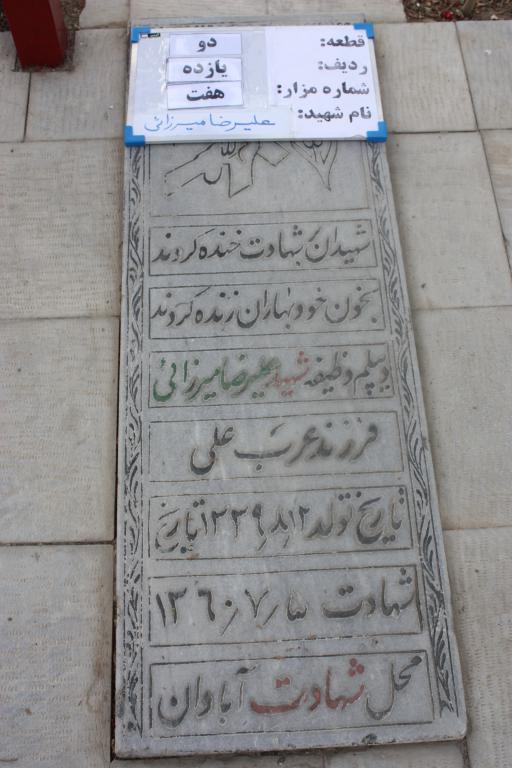 قطعه: دو
ردیف: یازده
شماره مزار: هفت
نام شهید: علیرضا میرزائی
شهیدان بر شهادت خنده کردند
بخون خود بهاران زنده کردند
دیپلم وظیفه شهید علیرضا میرزائی
فرزند عرب علی
تاریخ تولد ۱۳۳۹٫۸٫۱۲ تاریخ
شهادت ۱۳۶۰٫۷٫۵
محل شهادت آبادان